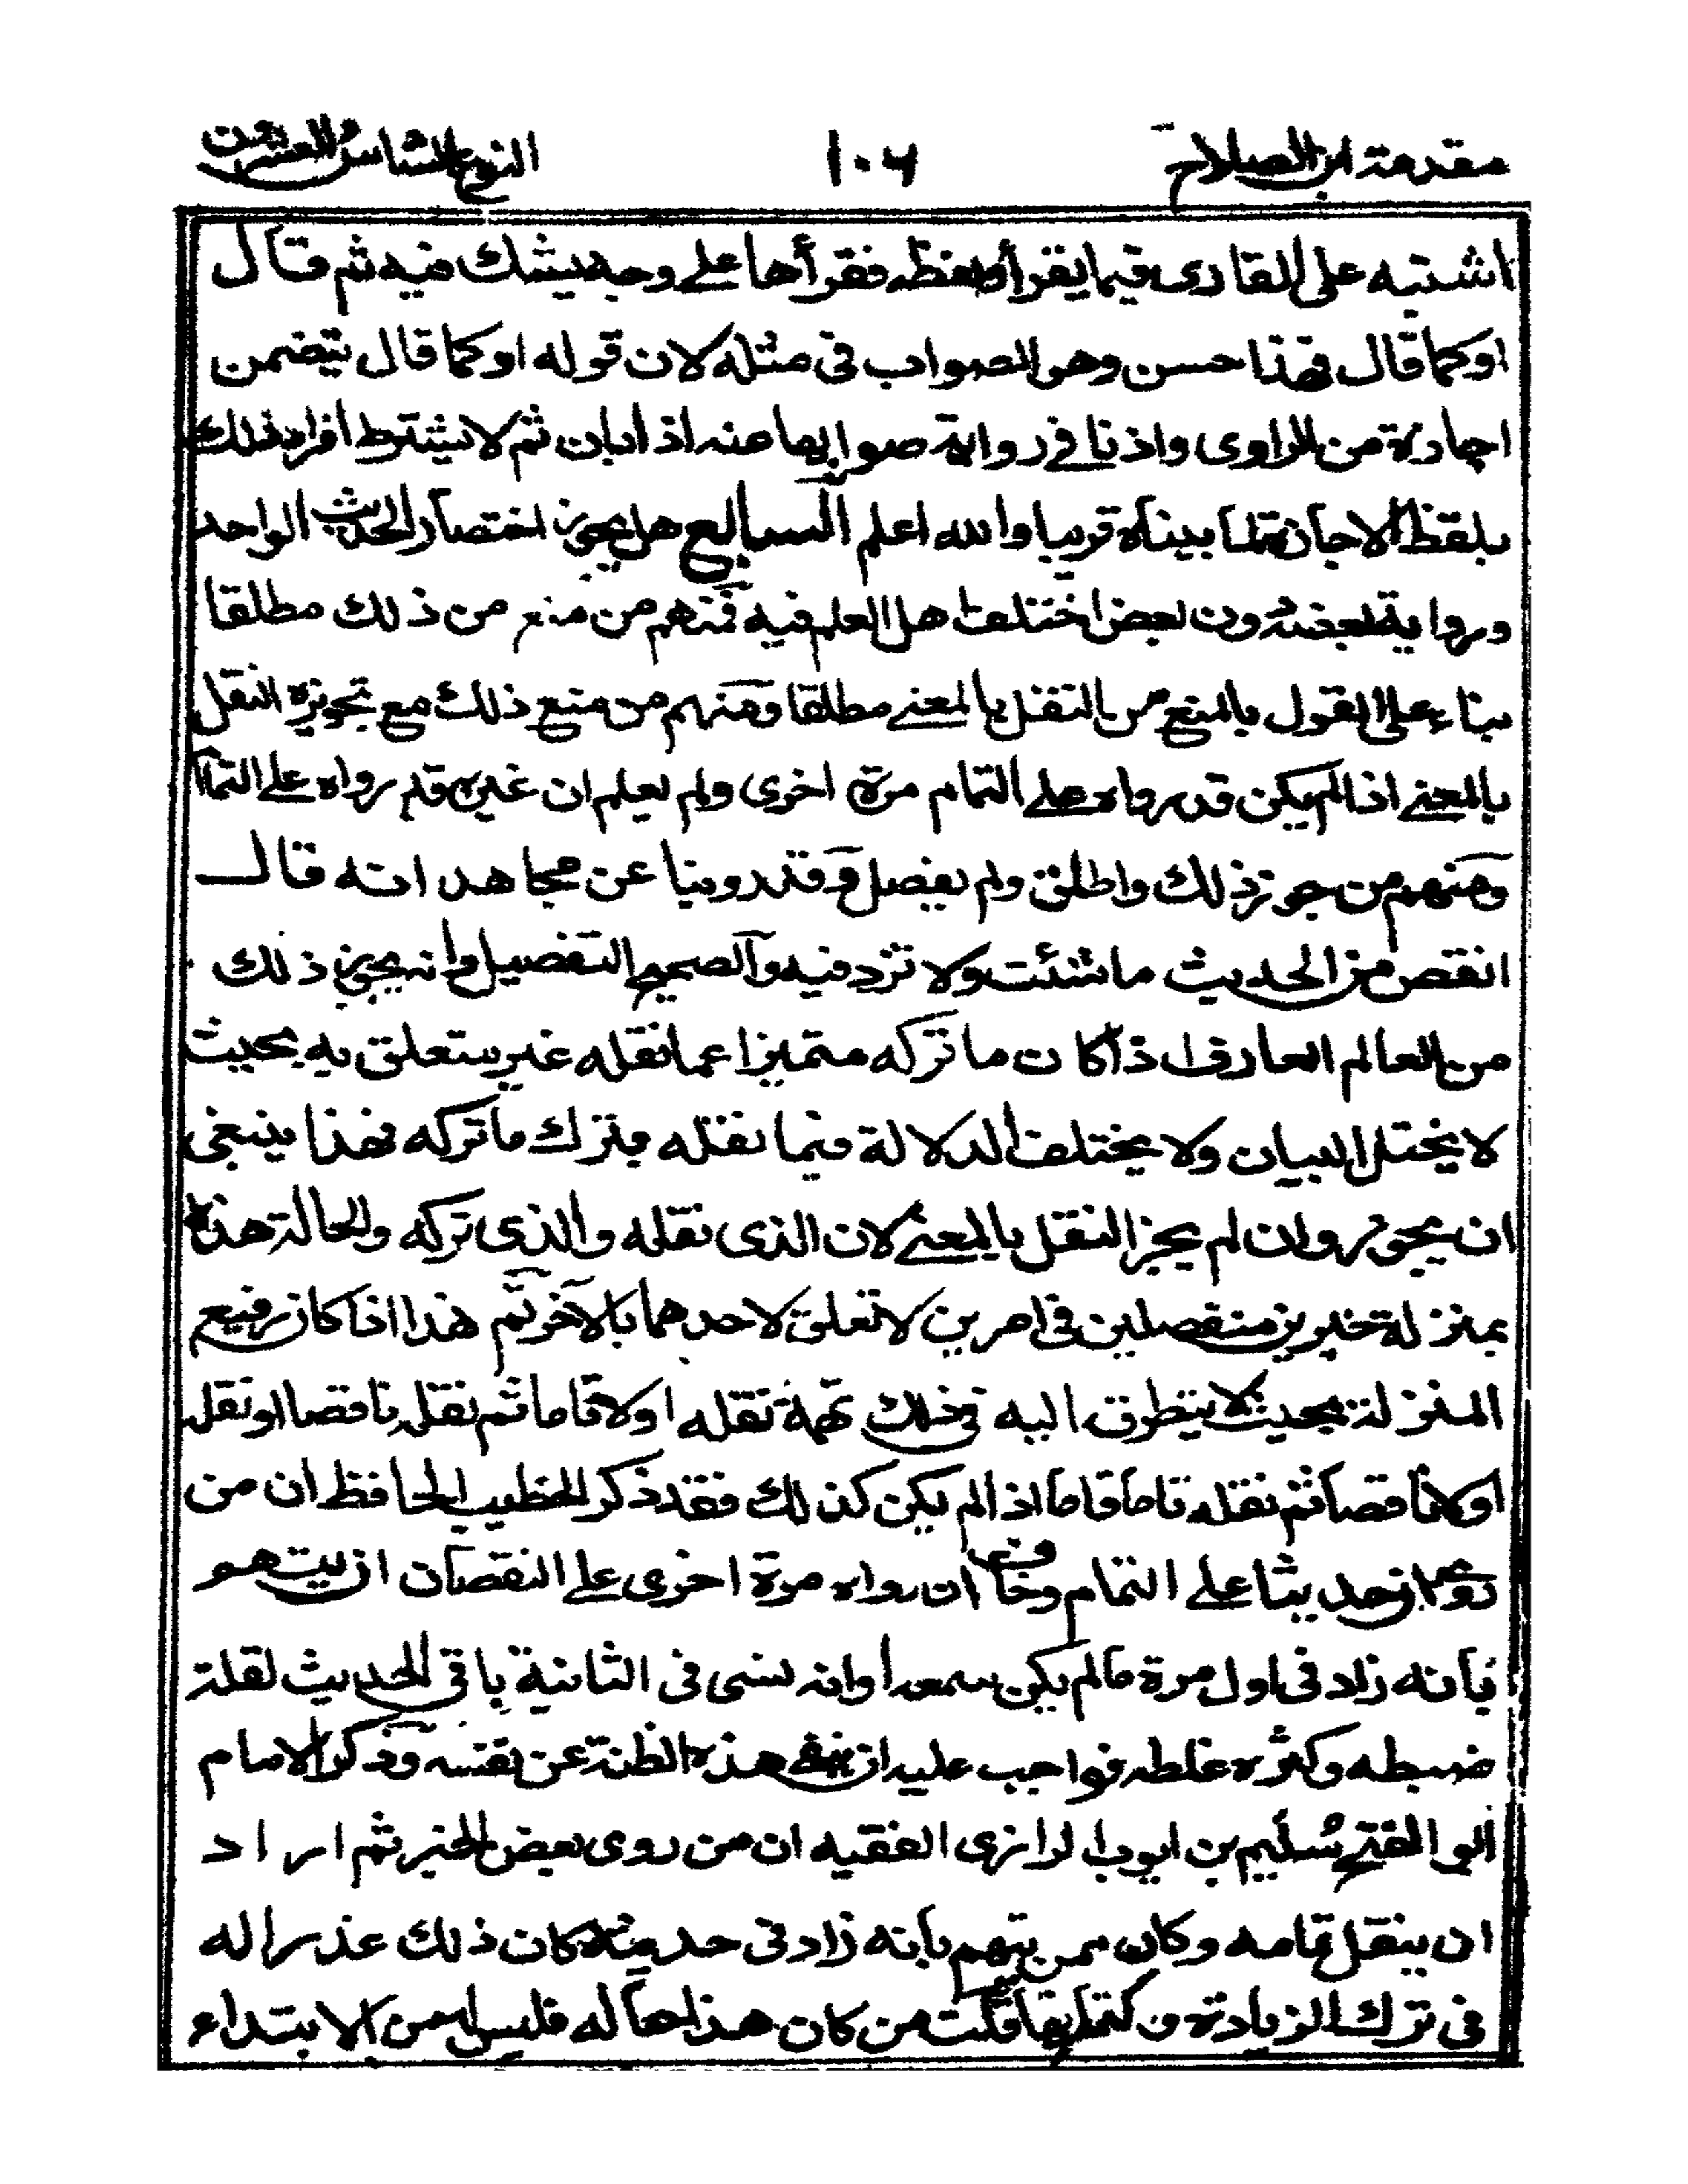 مقدمة ابن الصلاح ١٠٦ النوع السادس والعشرون
اشتبه على القارى فيما يقرأ ولفظه فقرأها على وجه يشك فيه ثم قال
اوكما قال فهذا حسن وهو الصواب فى مثله لان قوله اوكما قال يتضمن
اجازة من الراوى واذنا فى رواية صوابها عنه اذا بان ثم لا يشترط افراد ذلك
بلفظ الاجازة لما بيناه قريبا والله اعلم السابع هل يجوز اختصار الحديث الواحد
ورواية بعضه دون بعض اختلف اهل العلم فيه فمنهم من منع من ذلك مطلقا
بناء على القول بالمنع من النقل بالمعنى مطلقا ومنهم من منع ذلك مع تجويزه النقل
بالمعنى اذا لم يكن قد رواه على التمام مرة اخرى ولم يعلم ان غيره قد رواه على التمام
ومنهم من جوز ذلك واطلق ولم يفصل وقد روينا عن مجاهد انه قال
انقص من الحديث ما شئت ولا تزد فيه والصحيح التفصيل وانه يجوز ذلك
من العالم العارف اذا كان ما تركه متميزا عما نقله غير متعلق به بحيث
لا يختل البيان ولا يختلف الدلالة فيما نقله بترك ما تركه فهذا ينبغى
ان يجوز وان لم يجز النقل بالمعنى لان الذى نقله والذى تركه والحالة هذه
بمنزلة خبرين منفصلين فى امرين لا تعلق لاحدهما بالآخر ثم هذا اذا كان رفيع
المنزلة بحيث لا يتطرق اليه فى ذلك تهمة نقله اولا تاما ثم نقله ناقصا او نقله
اولا ناقصا ثم نقله تاما فاما اذا لم يكن كذلك فقد ذكر الخطيب الحافظ ان من
روى حديثا على التمام وخاف ان رواه مرة اخرى على النقصان ان يتهم
بانه زاد فى اول مرة ما لم يكن سمعه او انه نسى فى الثانية باقى الحديث لقلة
ضبطه وكثرة غلطه فواجب عليه ان ينفى هذه الظنة عن نفسه وذكر الامام
ابو الفتح سُليم بن ايوب الرازى الفقيه ان من روى بعض الخبر ثم اراد
ان ينقل تمامه وكان ممن يتهم بانه زاد فى حديثه كان ذلك عذرا له
فى ترك الزيادة وكتمانها قلت من كان هذا حاله فليس له من الابتداء